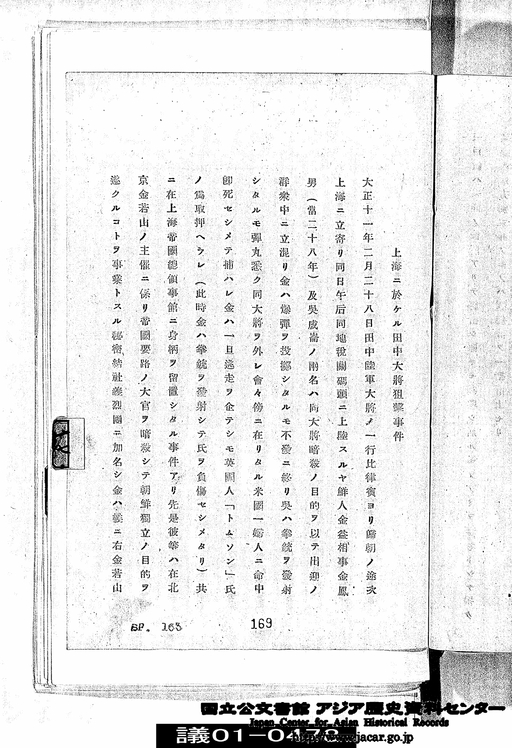 上海ニ於ケル田中大將狙擊事件
大正十一年二月二十八日田中陸軍大將ノ一行比律賓ヨリ歸朝ノ途次
上海ニ立寄リ同日午后同地稅關碼頭ニ上陸スルヤ鮮人金益相事金鳳
男(當二十八年)及吳成崙ノ兩名ハ同大將暗殺ノ目的ヲ以テ出迎ノ
群衆中ニ立混リ金ハ爆彈ヲ投擲シタルモ不發ニ終リ吳ハ拳銃ヲ發射
シタルモ彈丸悉ク同大將ヲ外レ會々傍ニ在リタル米國一婦人ニ命中
卽死セシメテ捕ハレ金ハ一旦逃走ヲ企テシモ英國人「トムソン」氏
ノ爲取押ヘラレ(此時金ハ拳銃ヲ發射シテ氏ヲ負傷セシメタリ)共
ニ在上海帝國總領事館ニ身柄ヲ留置シタル事件アリ先是彼等ハ在北
京金若山ノ主催ニ係リ帝國要路ノ大官ヲ暗殺シテ朝鮮獨立ノ目的ヲ
遂クルコトヲ事業トスル祕密結社義烈團ニ加名シ金ハ襄ニ右金若山
169
国立公文書館 アジア歴史資料センター
Japan Center for Asian Historical Records
http://www.jacar.go.jp